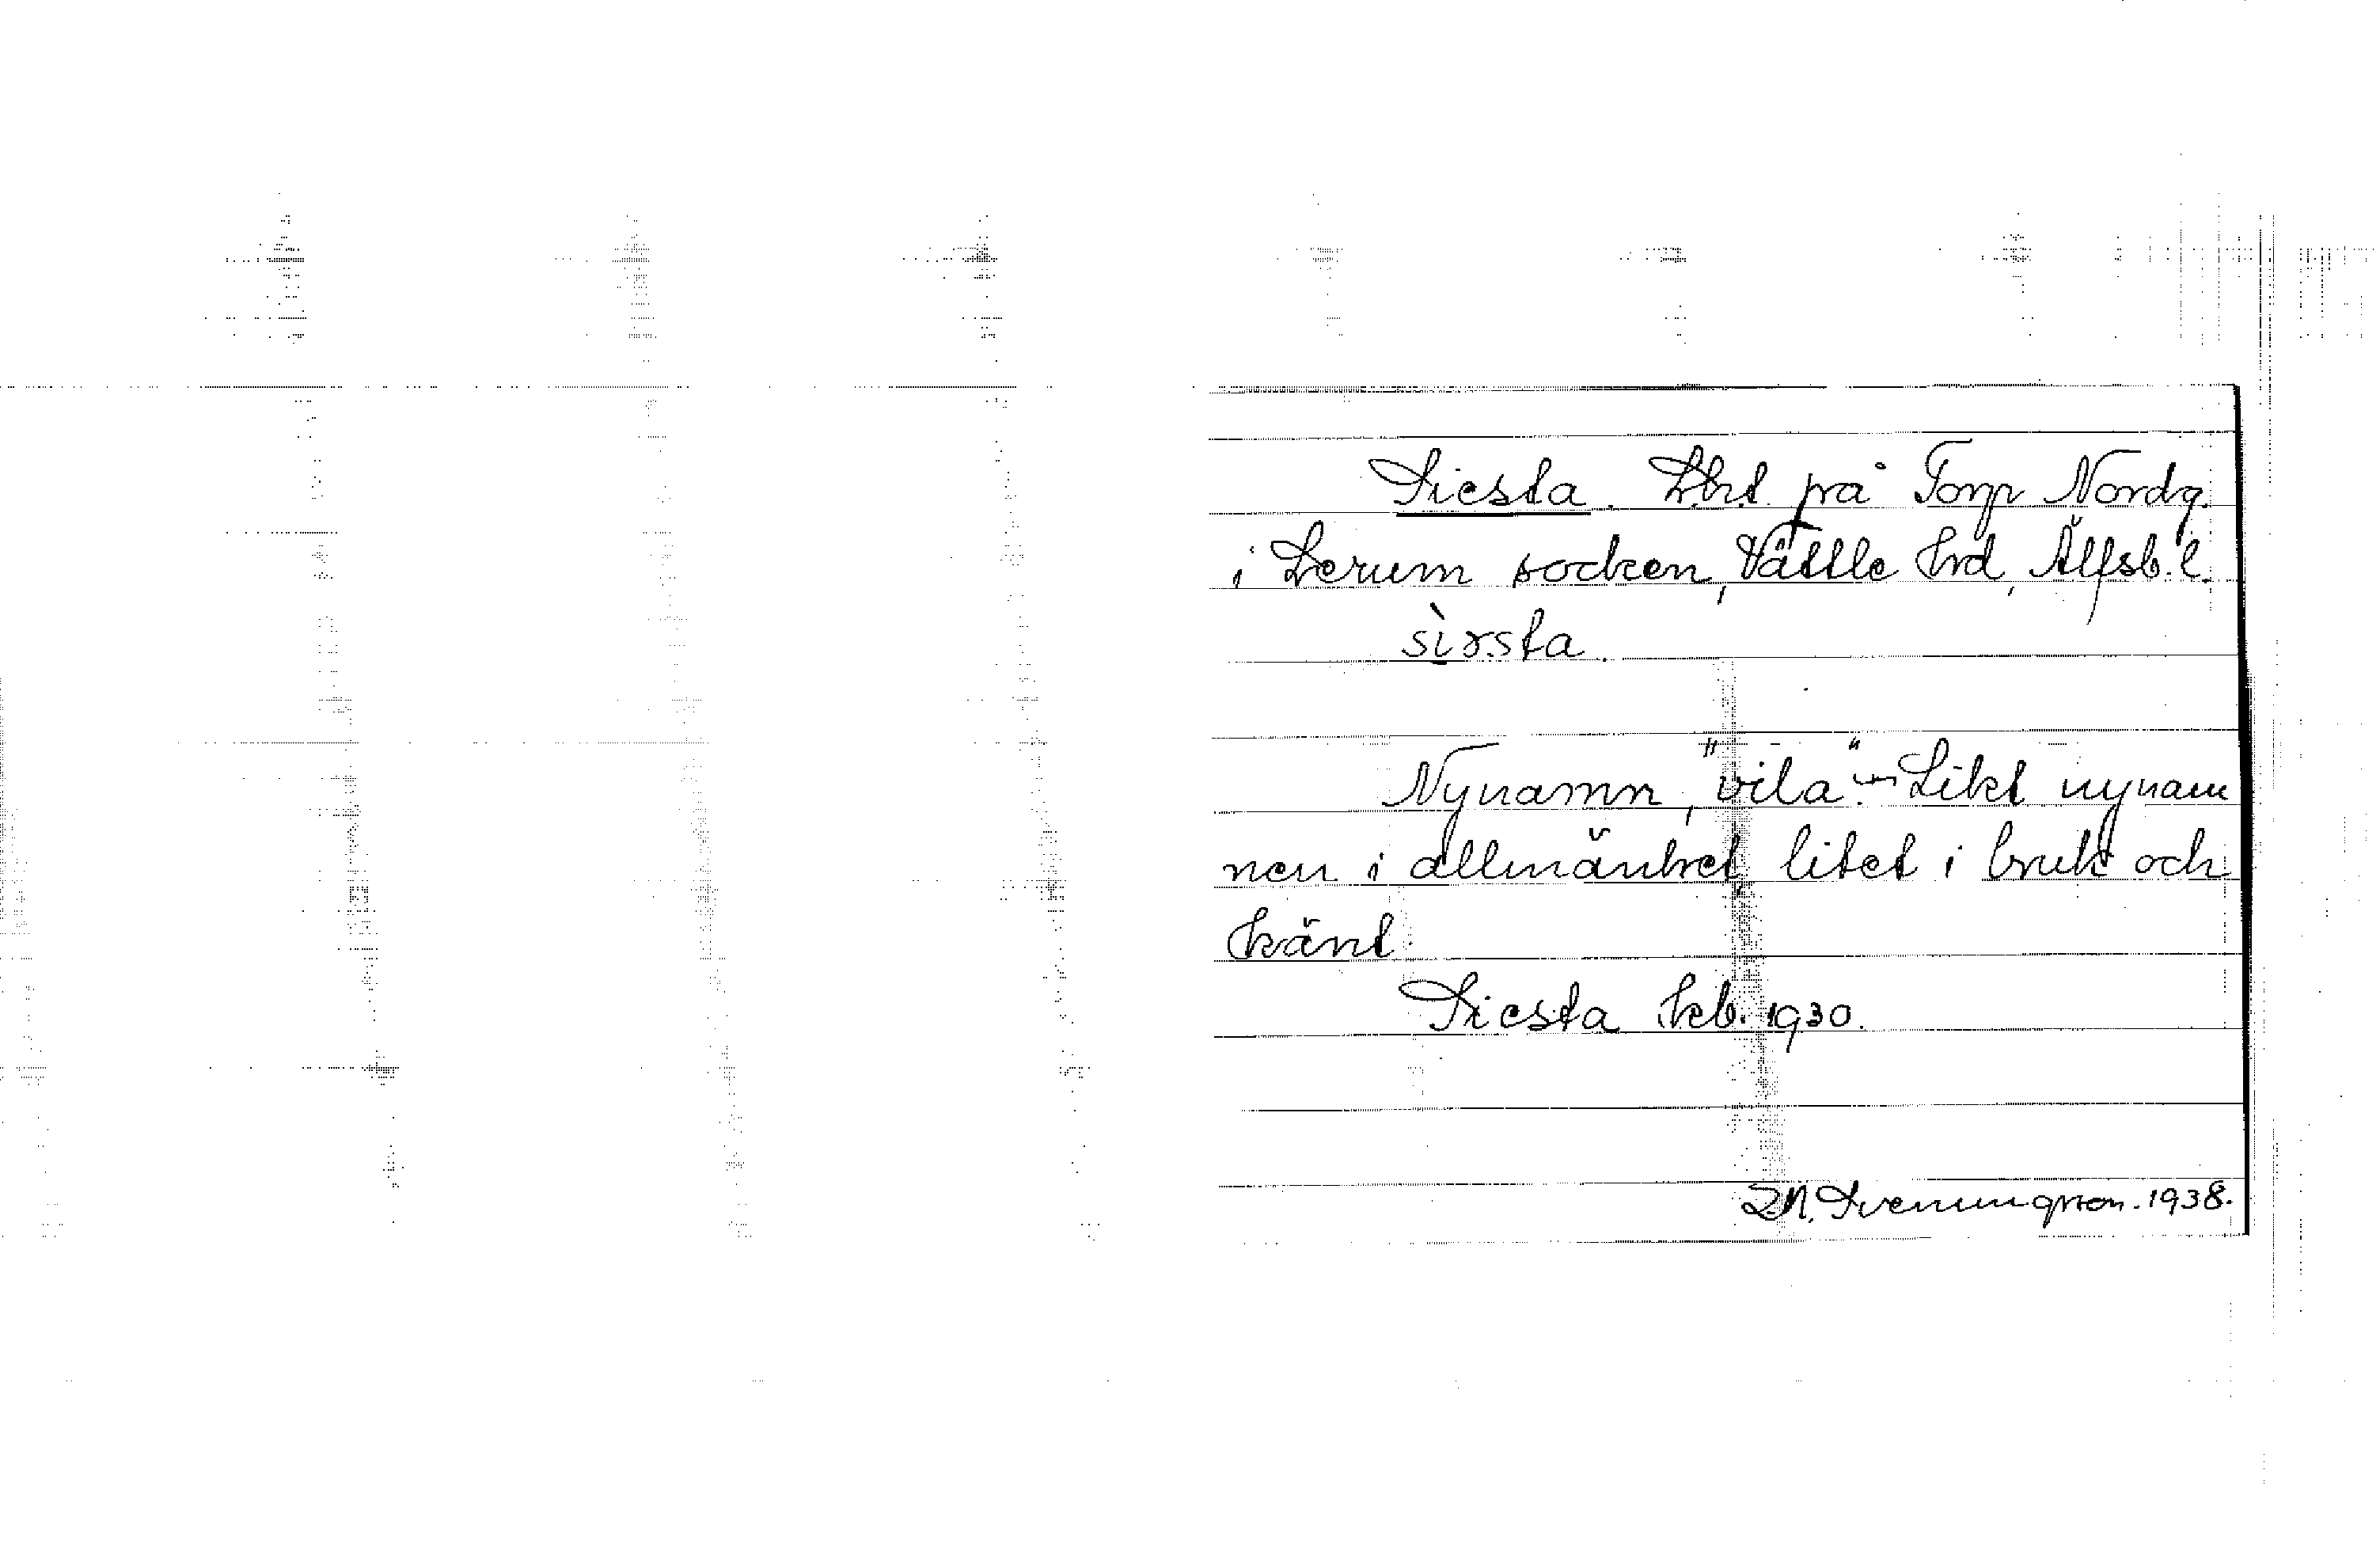 Siesta. Lht. på Torp Nordg.
i Lerum socken, Vättle hrd, Älfsb. l.
sìɤsta.
Nynamn, "vila". — Likt nynam
nen i allmänhet, litet i bruk och
känt.
Siesta kb. 1930.
Sveningsson. 1938.